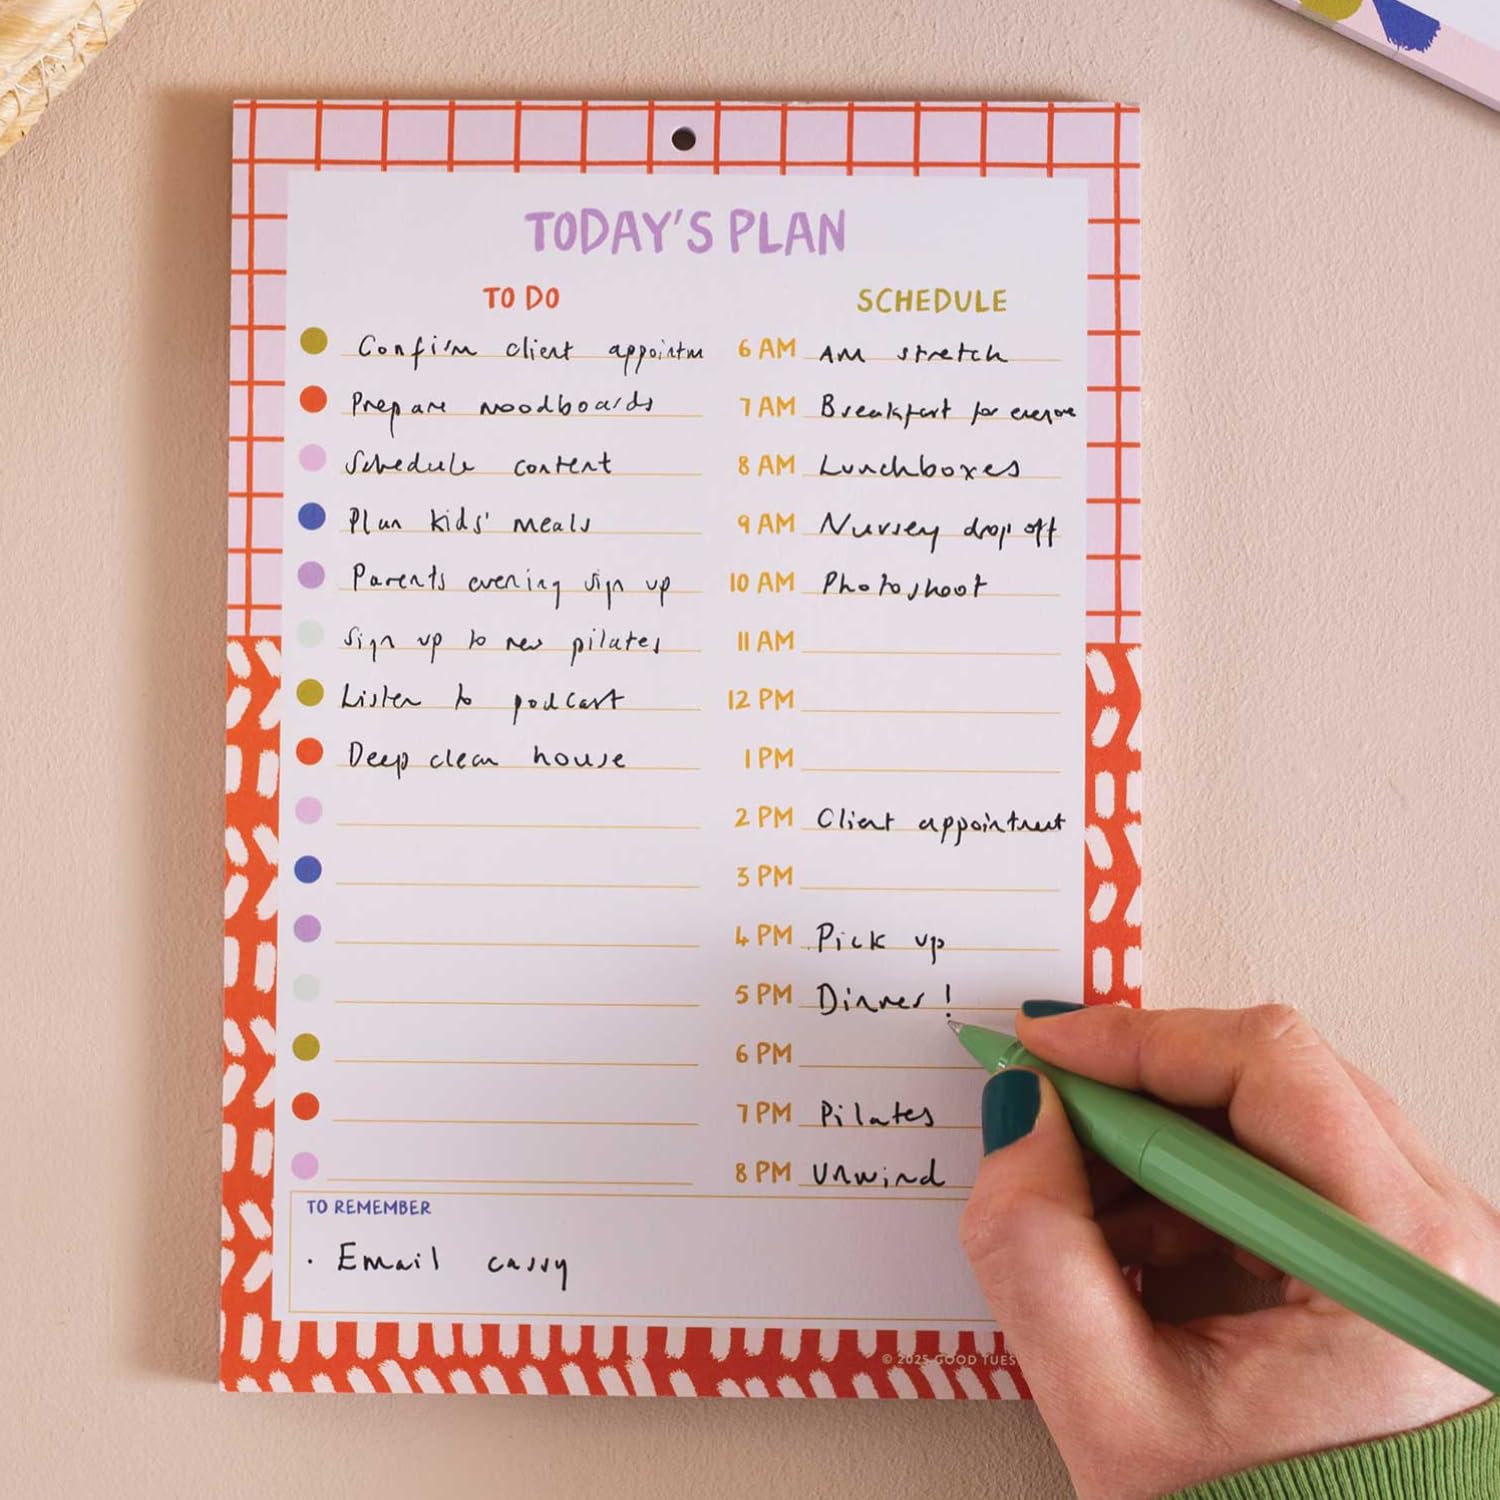 TODAY'S PLAN
TO DO
Confirm client appointm
Prepare moodboards
Schedule content
Plan kids' meals
Parents evening sign up
Sign up to new pilates
Listen to podcast
Deep clean house
SCHEDULE
6 AM AM stretch
7 AM Breakfast for everyone
8 AM Lunchboxes
9 AM Nursery drop off
10 AM Photoshoot
11 AM
12 PM
1 PM
2 PM Client appointment
3 PM
4 PM Pick up
5 PM Dinner!
6 PM
7 PM Pilates
8 PM Unwind
TO REMEMBER
· Email cassy
© 2025 GOOD TUES